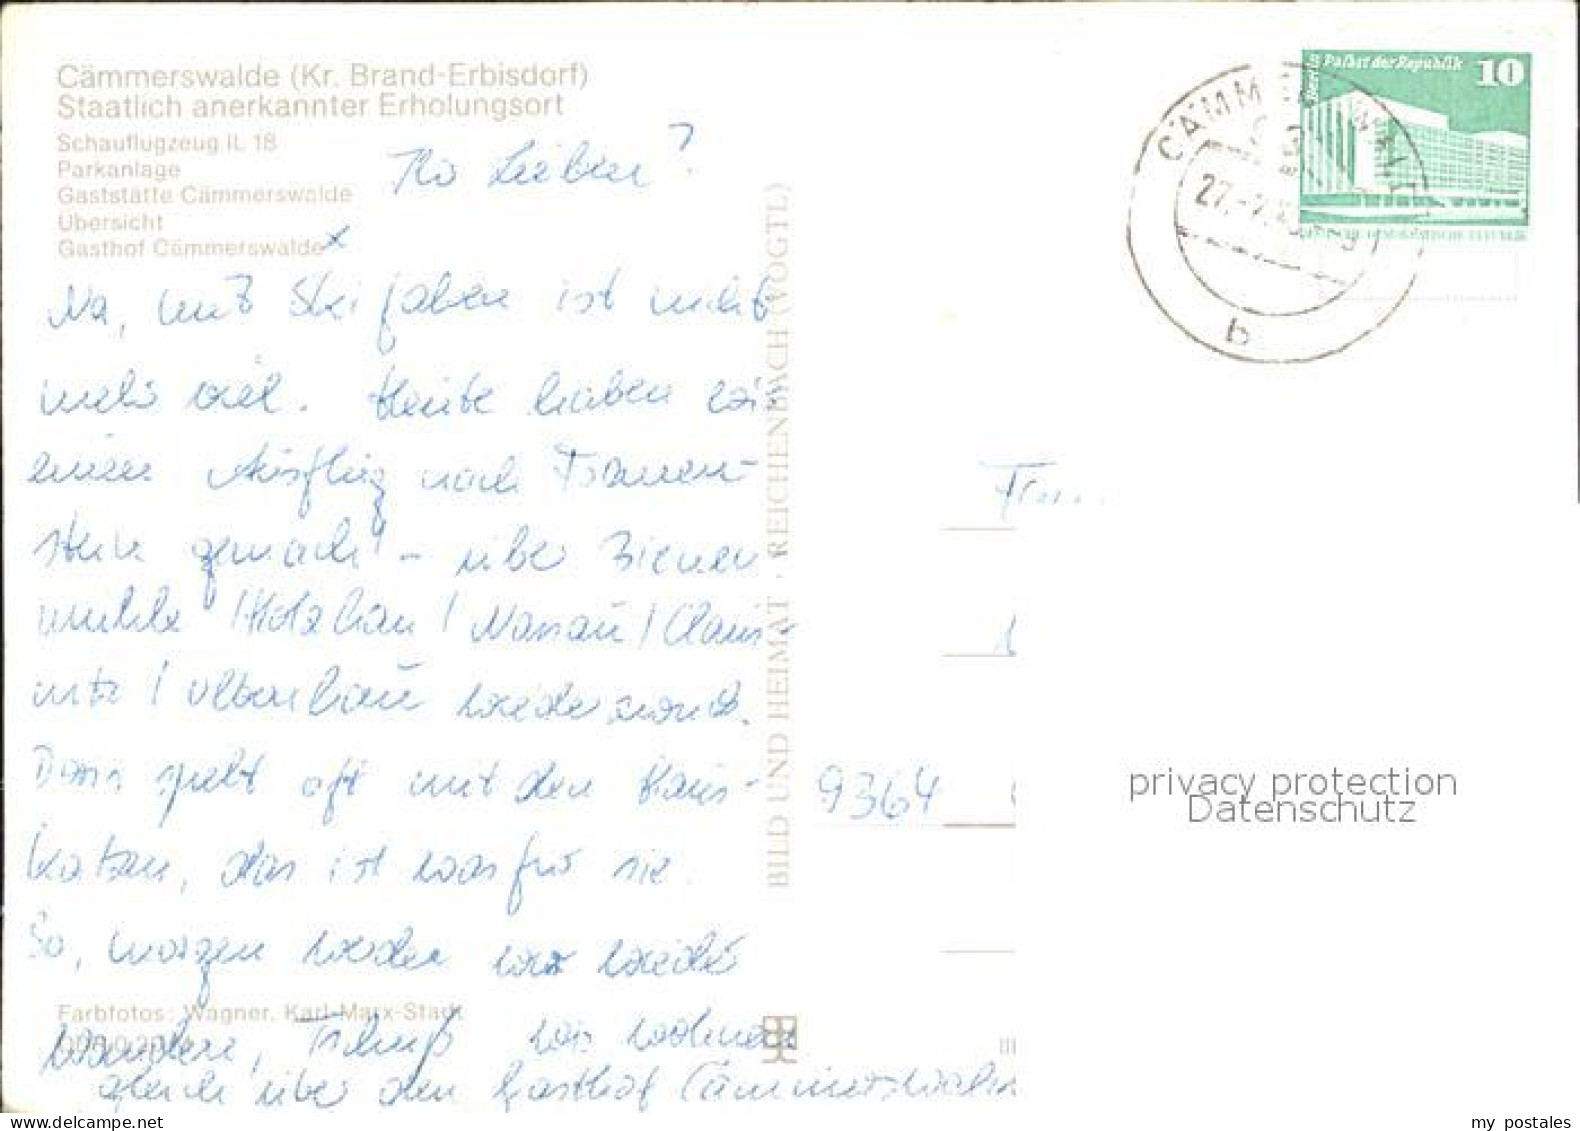 Cämmerswalde (Kr. Brand-Erbisdorf)
Staatlich anerkannter Erholungsort
Schauflugzeug IL 18
Parkanlage
Gaststätte Cämmerswalde
Übersicht
Gasthof Cämmerswalde x
Ihr Lieben!
Na, mit Ski fahren ist nicht
mehr viel. Heute haben wir
einen Ausflug nach Frauen-
stein gemacht - über Bienen
mühle / Holzhau / Nassau / Claus-
nitz / Olbernhau wieder zurück.
Dann spielt oft mit den Haus-
katzen, das ist was für sie.
So, morgen werden wir wieder
wandern, Tschüß wir wohnen
gleich über den Gasthof Cämmerswalde
Farbfotos: Wagner, Karl-Marx-Stadt
BILD UND HEIMAT · REICHENBACH (VOGTL)
Berlin Palast der Republik 10
CÄMMERSWALDE
27.
b
9364
privacy protection
Datenschutz
my postales